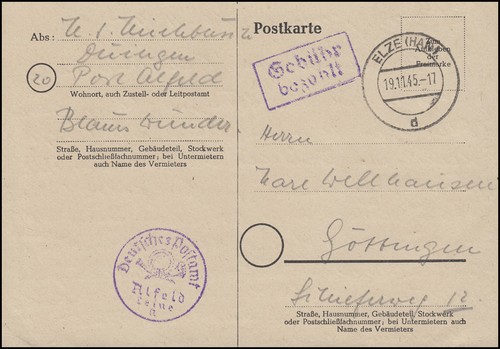 Abs:
Duingen
20
Post Alfeld
Wohnort, auch Zustell- oder Leitpostamt
Straße, Hausnummer, Gebäudeteil, Stockwerk
oder Postschließfachnummer; bei Untermietern
auch Name des Vermieters
Deutsches Postamt
Alfeld
Leine
Postkarte
zum
Aufkleben
der
Freimarke
Gebühr
bezahlt
ELZE (HAN)
19.11.45.-17
d
Herrn
Karl Wellhausen
Göttingen
Schiefweg 12
Straße, Hausnummer, Gebäudeteil, Stockwerk
oder Postschließfachnummer; bei Untermietern auch
Name des Vermieters